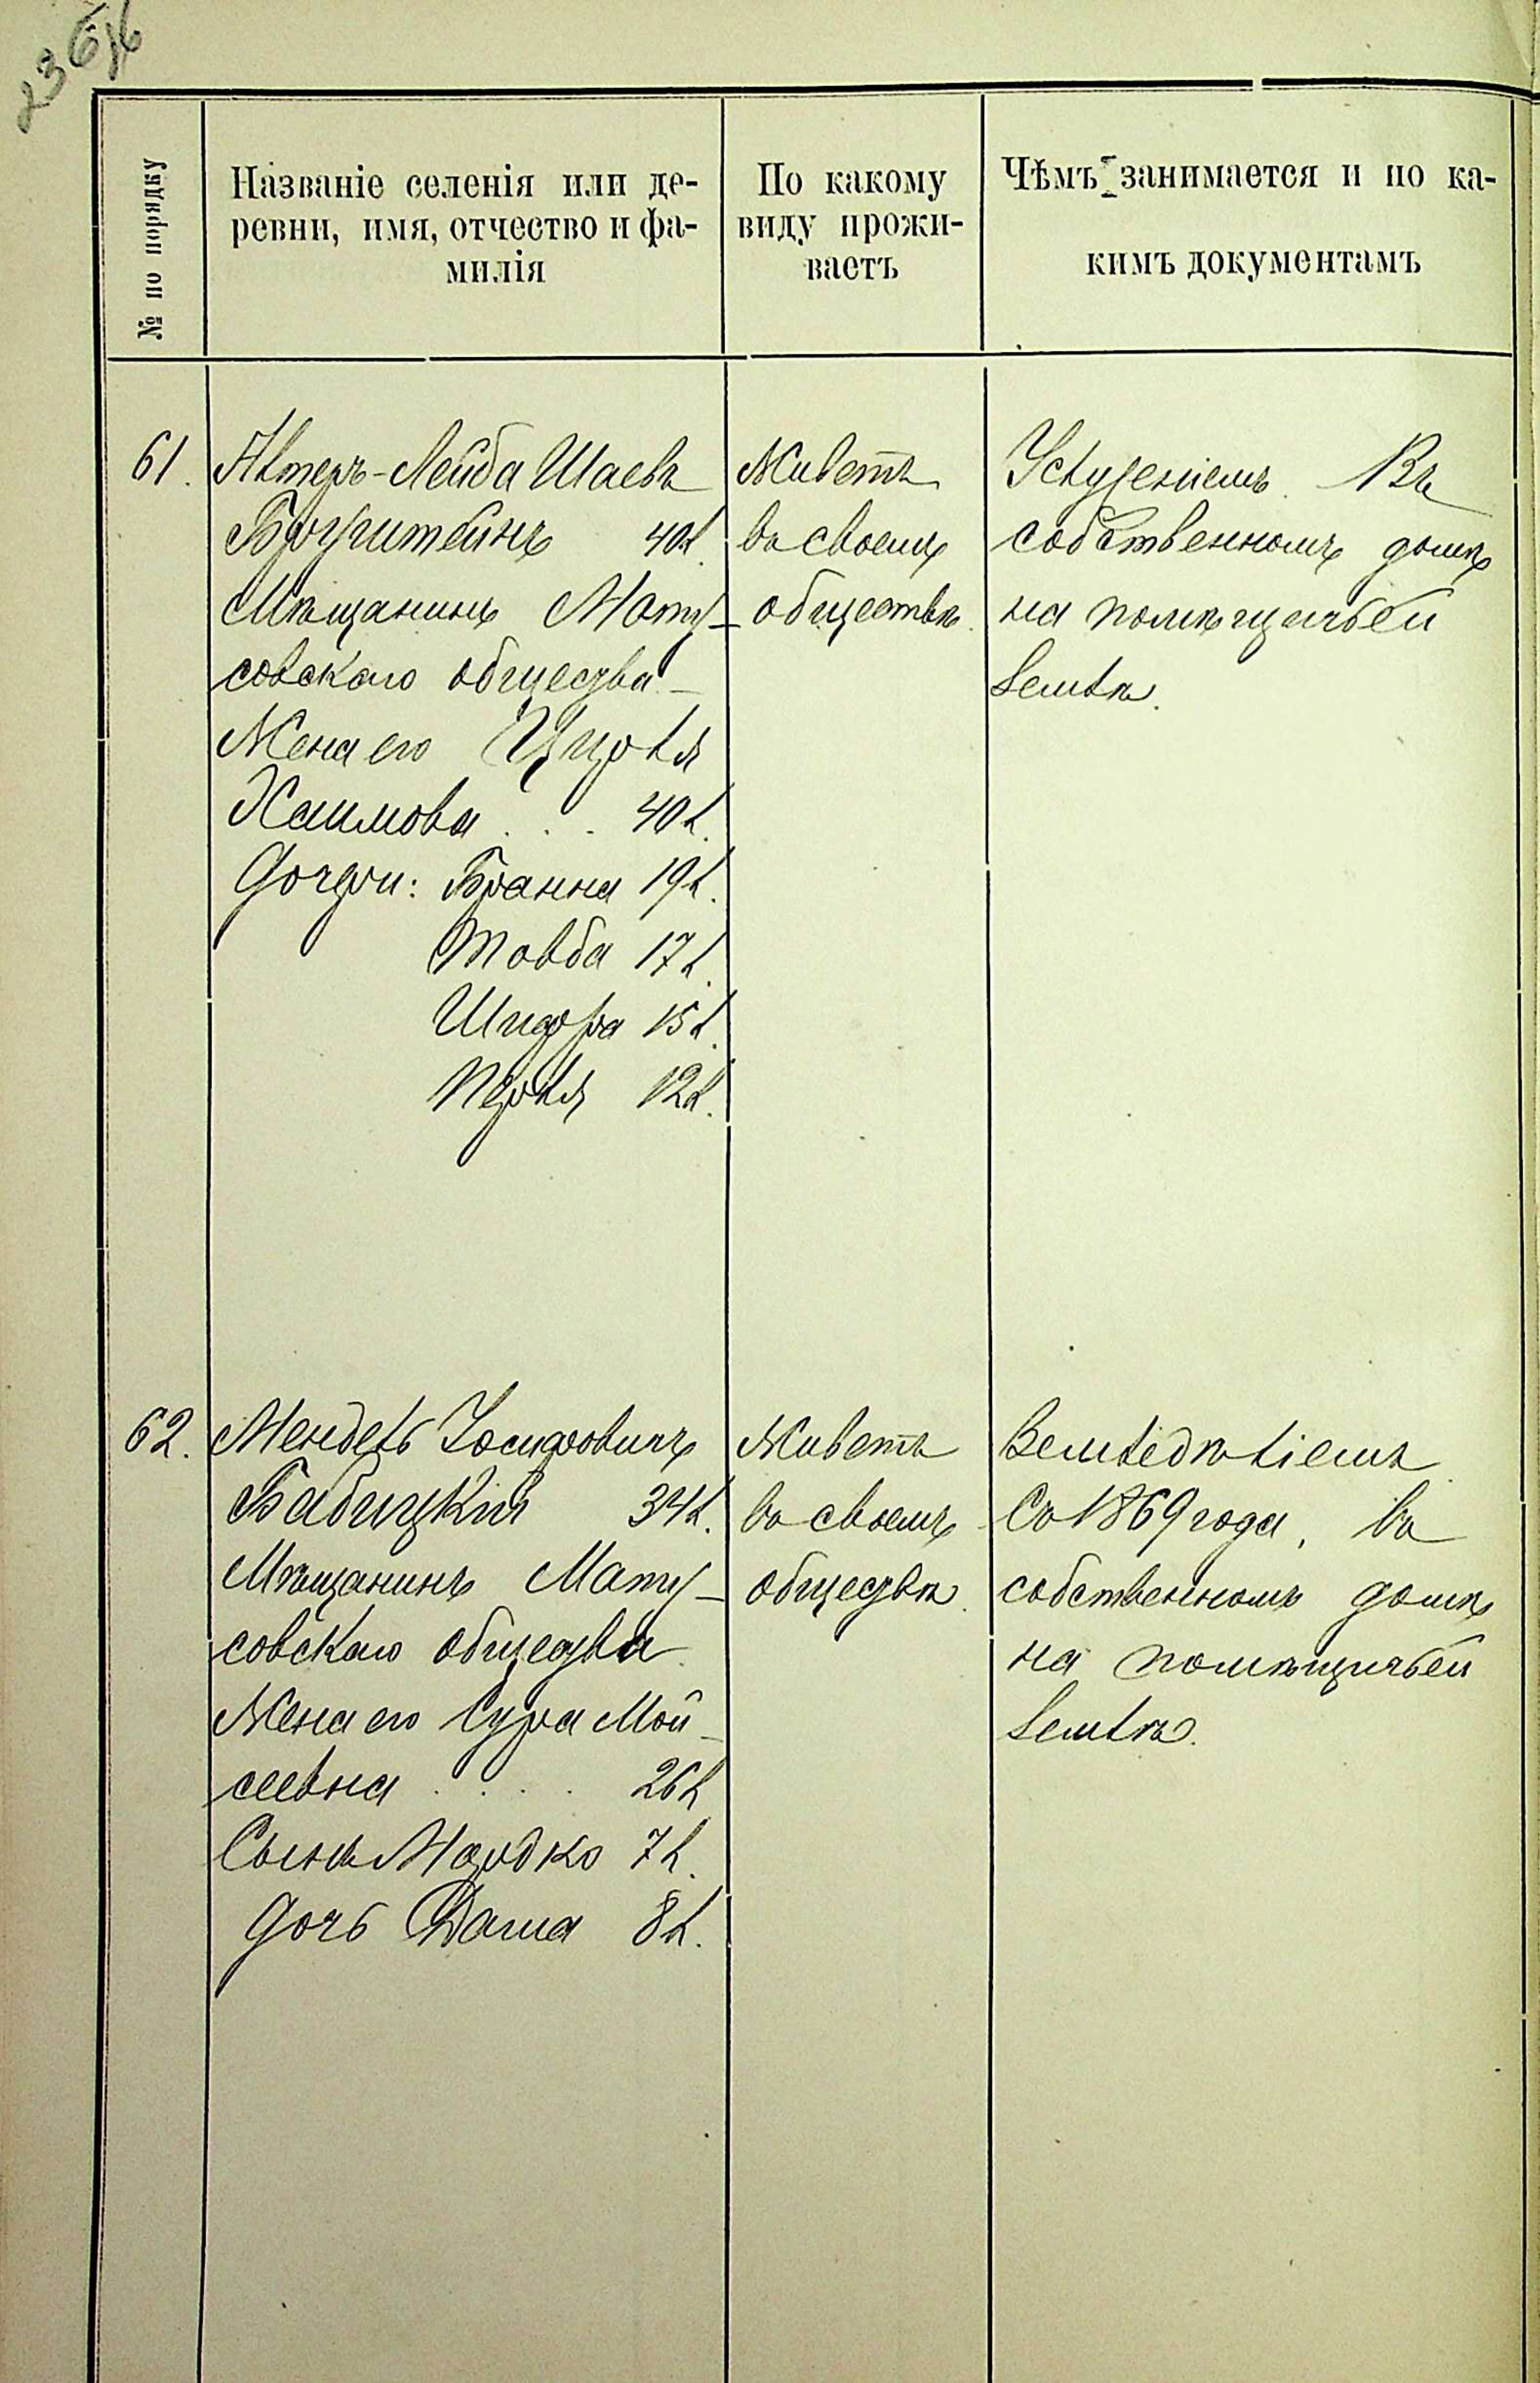 236
№ по порядку
Названіе селенія или де-
ревни, имя, отчество и фа-
милія
По какому
виду прожи-
ваетъ
Чѣмъ занимается и по ка-
кимъ документамъ
61.
Альтеръ-Лейба Шаевъ
40 л.
Мѣщанинъ Мату-
совскаго общества
Жена его Цирля
Хаимова . . . 40 л.
Дочери: Бранна 19 л.
Товба 17 л.
Шифра 15 л.
Перля 12 л.
Живетъ
въ своемъ
обществѣ.
Услуженіемъ. Въ
собственномъ домѣ
на помѣщичьей
землѣ.
62.
Мендель Іосифовичъ
Бабицкій 34 л.
Мѣщанинъ Мату-
совскаго общества
Жена его Сура Мой-
сеевна . . . . 26 л
Сынъ Мордко 7 л.
Дочь Хаша 8 л.
Живетъ
въ своемъ
обществѣ.
Земледѣліемъ
Съ 1869 года, въ
собственномъ домѣ
на помѣщичьей
землѣ.